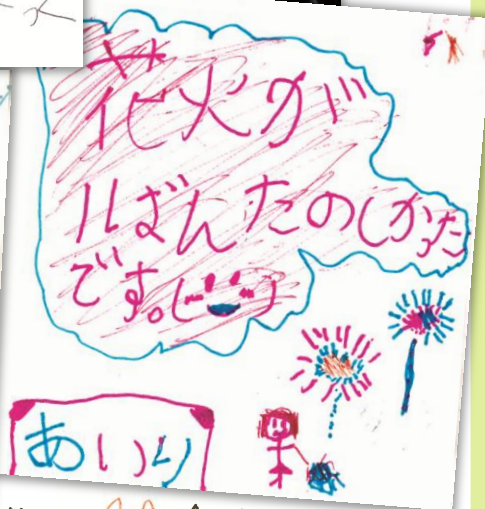 花火が
いばんたのしかった
です。(¨ ‿ )
あいり